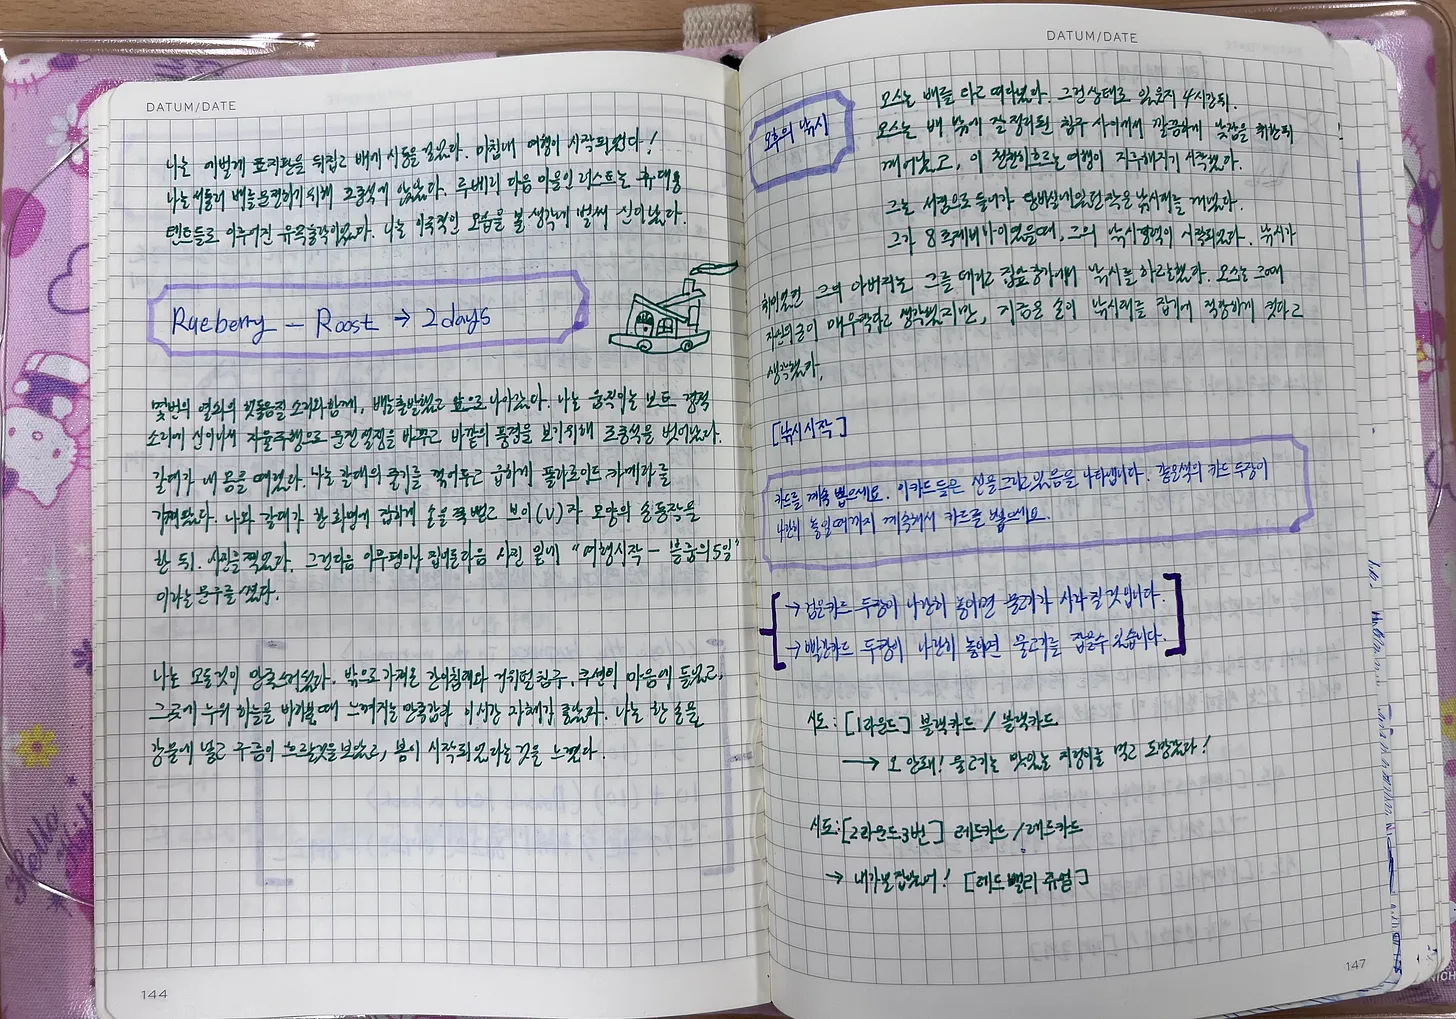 DATUM/DATE
나는 재빠르게 표지판을 뒤집고 배에 시동을 걸었다. 마침내 여행이 시작되었다!
나는 서둘러 배를 운전하기 위해 조종석에 앉았다. 루베리 다음 마을인 러스트는 휴대용
텐트들로 이루어진 유목 이었다. 나는 이국적인 모습을 볼 생각에 벌써 신이 났다.
Rueberry — Roost → 2 days
몇번의 열쇠의 소리와 함께, 배는 출발했고 앞으로 나아갔다. 나는 움직이는 보트 경적
소리에 신이나서 자율주행으로 운전 바꾸고 바깥의 풍경을 보기위해 조종석을 벗어났다.
갈대가 내 몸을 . 나는 갈대의 줄기를 꺾어두고 급하게 폴라로이드 카메라를
가져왔다. 나와 갈대가 한 화면에 잡히게 손을 쭉 뻗고 브이(V)자 모양의 손동작을
한 뒤. 사진을 찍었다. 그런다음 사진 밑에 "여행시작 — 5일"
이라는 문구를 썼다.
나는 모든것이 만족스러웠다. 밖으로 가져온 간이침대와 침구, 쿠션이 마음에 들었고,
그곳에 누워 하늘을 바라볼때 느껴지는 만족감과 이시간 자체가 좋았다. 나는 한 손을
강물에 넣고 구름이 흐르는것을 보았고, 봄이 시작되었다는 것을 느꼈다.
144
DATUM/DATE
오후의 낚시
오스는 배를 타고 떠다녔다. 그런상태로 있은지 4시간뒤.
오스는 배 밖에 잘 정리된 침구 사이에서 깔끔하게 낮잠을 취한뒤
깨어났고, 이 천천히흐르는 여행이 지루해지기 시작했다.
그는 서랍으로 들어가 작은 낚시대를 꺼냈다.
그가 8 , 그의 낚시경력이 시작되었다. 낚시가
취미였던 그의 아버지는 그를 데리고 낚시를 하곤했다. 오스는 그때
자신의 손이 매우 작다고 생각했지만, 지금은 손이 낚시대를 잡기에 적당하게 컸다고
생각했다.
[낚시시작]
카드를 계속 뽑으세요. 이카드들은 있음을 나타냅니다. 같은색의 카드 두장이
나란히 놓일때까지 계속해서 카드를 뽑으세요.
→ 검은카드 두장이 나란히 놓이면 물고기가 사라질 것입니다.
→ 빨간카드 두장이 나란히 놓이면 물고기를 잡을수 있습니다.
시도: [1라운드] 블랙카드 / 블랙카드
→ 오 안돼! 물고기는 맛있는 지렁이를 먹고 도망갔다!
시도: [2라운드3번] 레드카드 / 레드카드
→ 내가 잡았어! [레드 벨리 쥬얼]
147